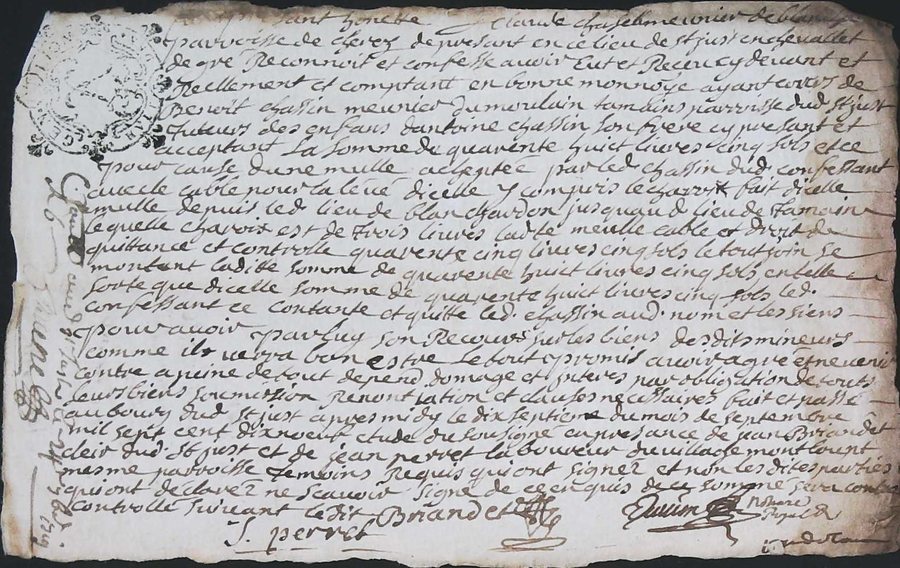 presant honeste Claude chassin meunier de blan
parroisse de cherez depresant en ce lieu de st just en chevallet
de gré Reconnoit et confesse avoir Eut et Receu cy devant et
Reellement et comptant en bonne monnoye ayant cours de
Benoit chassin meunier du moulain tamains parroisse dud st just
tuteurs des enfans dantoine chassin son frere cy presant et
acceptant La somme de quarente huit livres cinq sols et ce
pour cause dune mulle achentée par led chassin dud confessant
avec le cable pour la levé dicelle y compris le charroy fait dicelle
mulle depuis led lieu de blanchardon jusquaud lieu de tamain
lequelle charoit est de trois livres ladte meulle cable et droit de
quittance et controlle quarente cinq livres cinq sols le tout soin se
montant ladite somme de quarente huit livres cinq sols en telle
sorte que dicelle somme de quarente huit livres cinq sols led.
confessant ce contante et quitte led. chassin aud. nom et les siens
pour avoir par luy son Recours sur les biens desdits mineurs
comme il verra bon estre le tout promis avoir agreé et ne venir
contre a peine de tout depend domage et interes par obligation de touts
leurs biens soumission Renontiation et clauses necessaires fait et passé
au bourg dud st just apres midy le dix septieme du mois de septembre
mil sept cent dix noeuf etude du sousigné en presance de jean Briandet
cleir dud. st just et de jean perret laboureur du village montlouret
mesme parroisse temoins Requis qui ont signez et non lesdites parties
qui ont declarez ne scavoir signe de ce enquis de ce somme sera contre
controlle suivant ledit Briandet
J. perret
Notaire
Royal